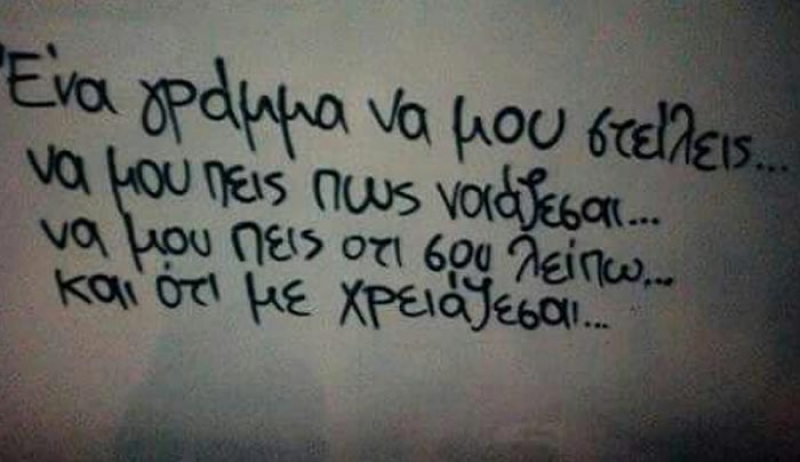 Ένα γράμμα να μου στείλεις...
να μου πεις πως νοιάζεσαι...
να μου πεις οτι σου λείπω...
και ότι με χρειάζεσαι...